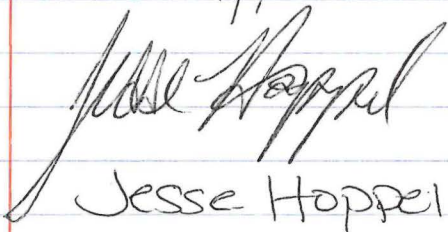 Jesse Hoppel
Jesse Hoppel